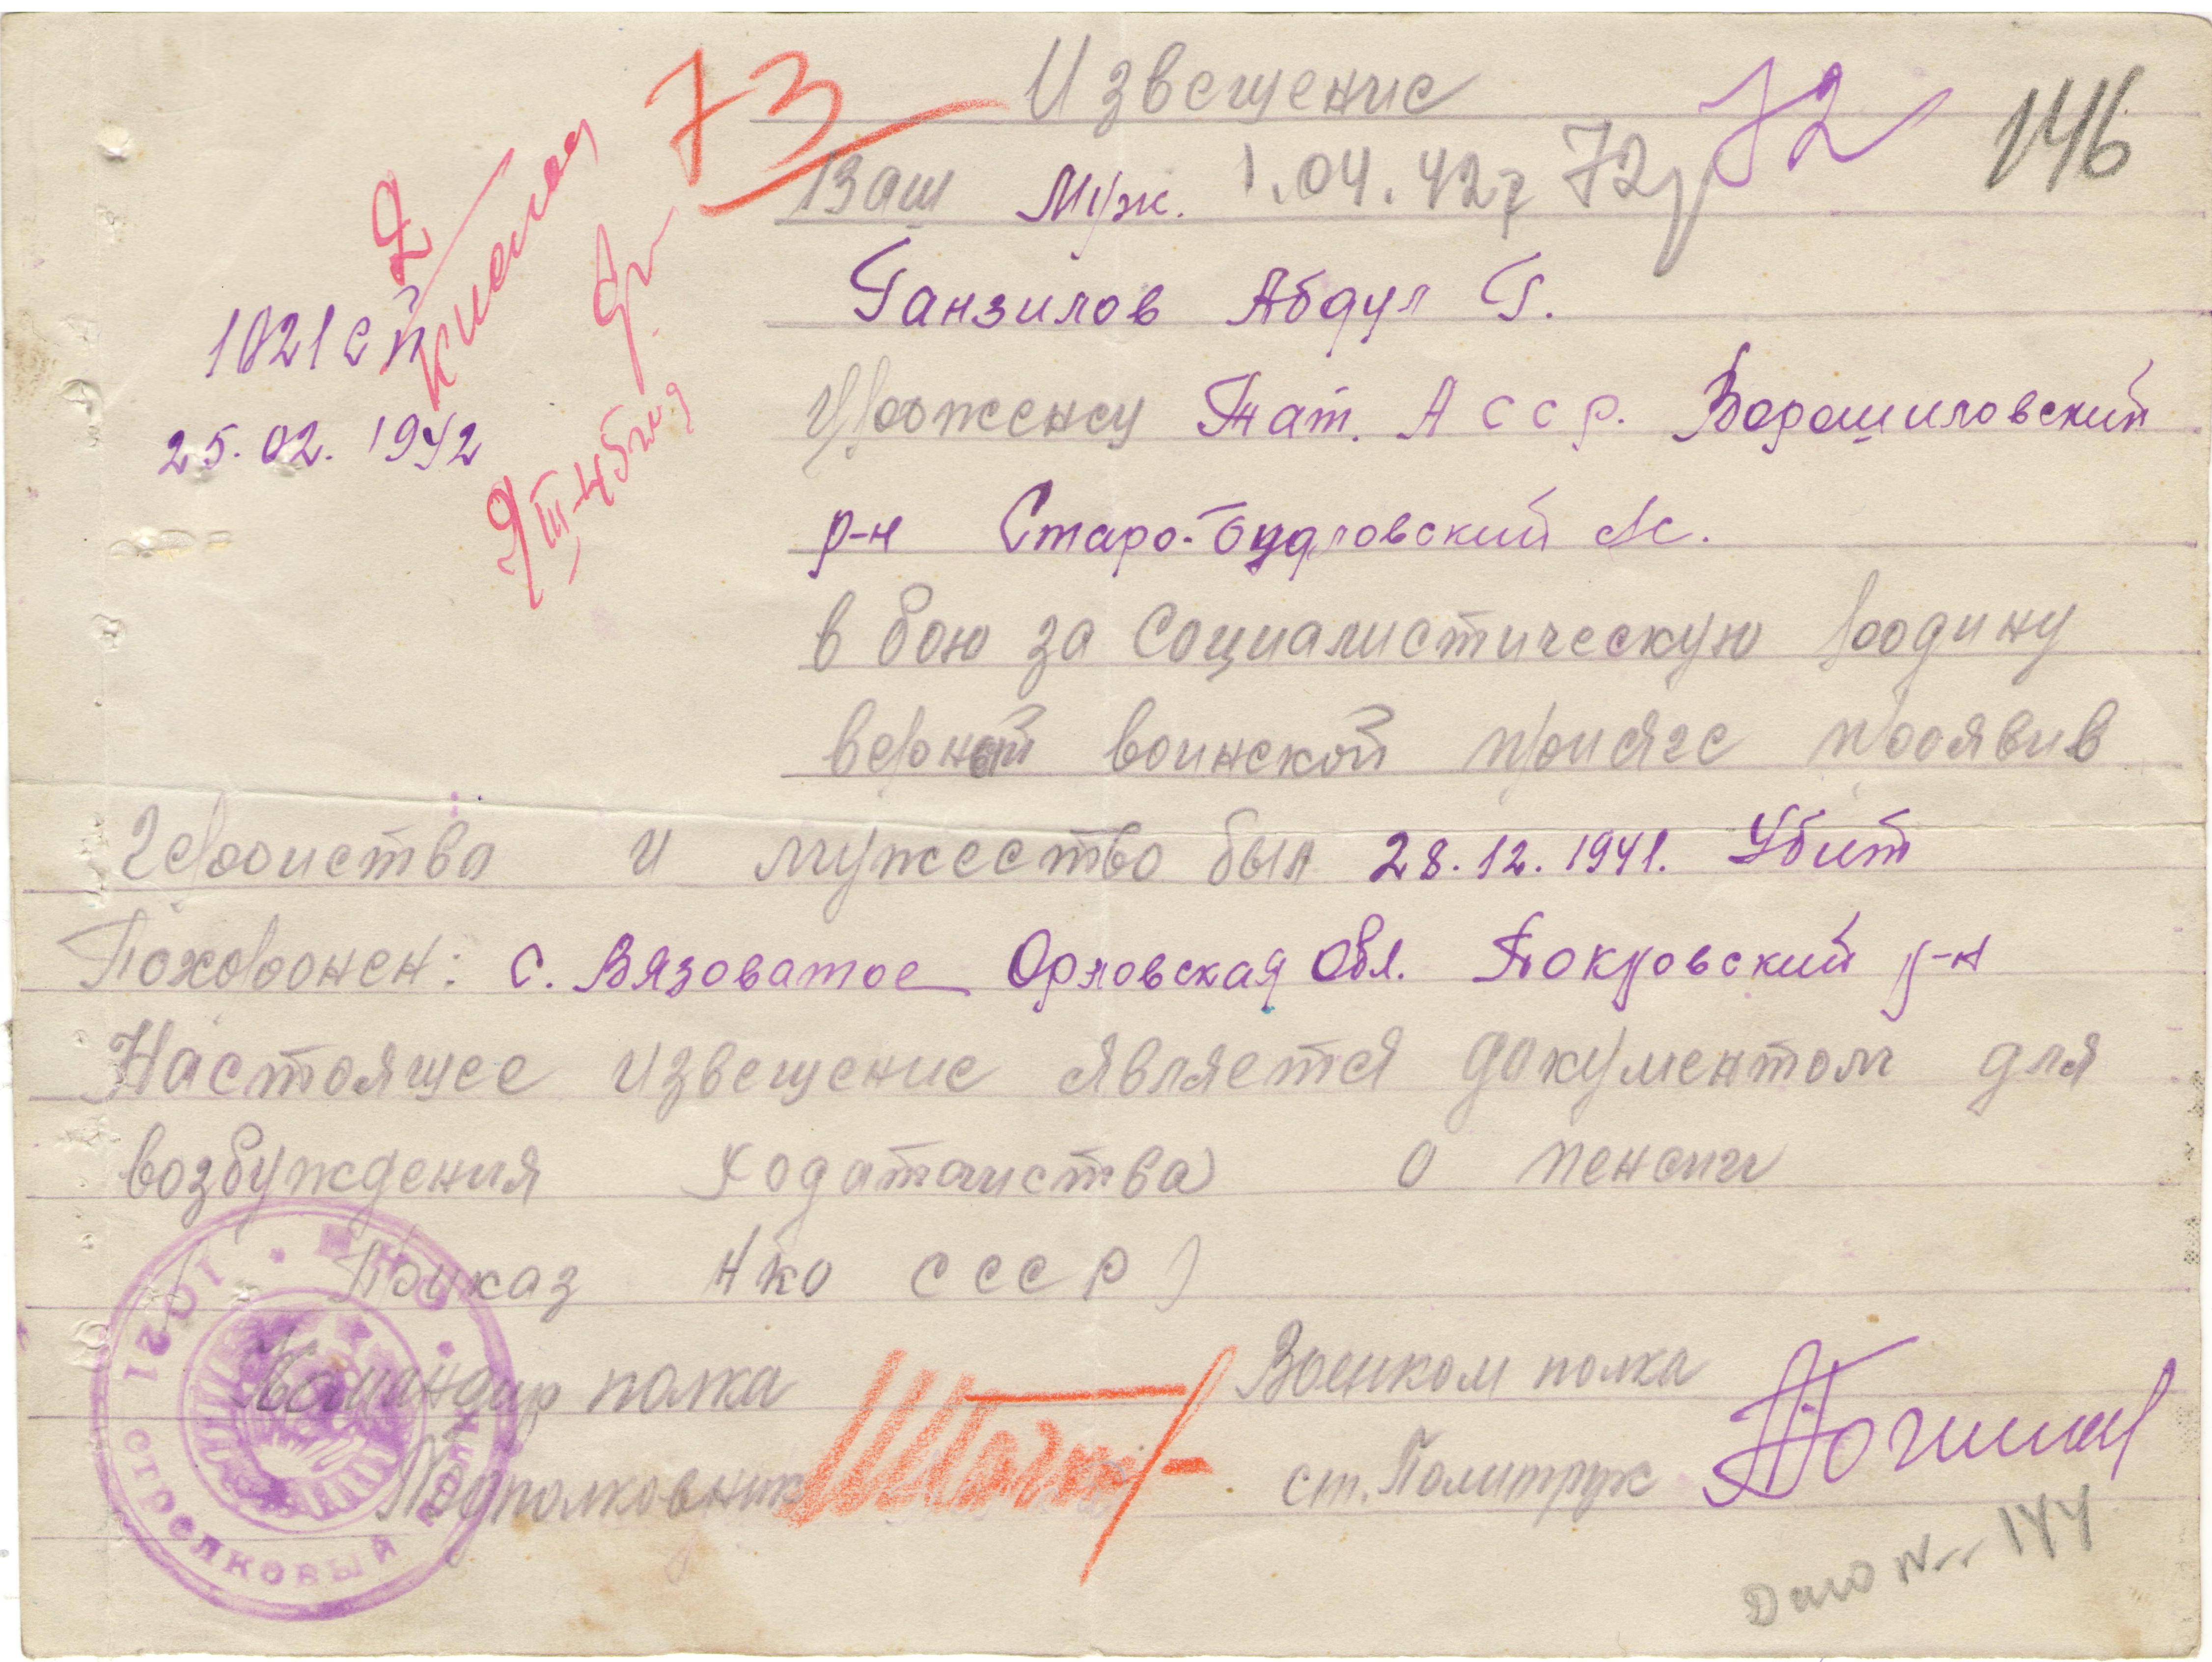 Извещение
73
72
146
Ваш муж. 1.04.42г 72
Ганзилов Абдул Г.
1021 СП
25.02.1942
Уроженец Тат. АССР. Ворошиловский
р-н Старо- с/с.
в бою за социалистическую родину
верный воинской присяге проявив
геройство и мужество был 28.12.1941. Убит
Похоронен: с. Вязоватое Орловская обл. Покровский р-н
Настоящее извещение является документом для
возбуждения ходатайства о пенсии
Приказ НКО СССР)
Командир полка Военком полка
Подполковник ст. Политрук
Дело №. 144
1021 стрелковый полк